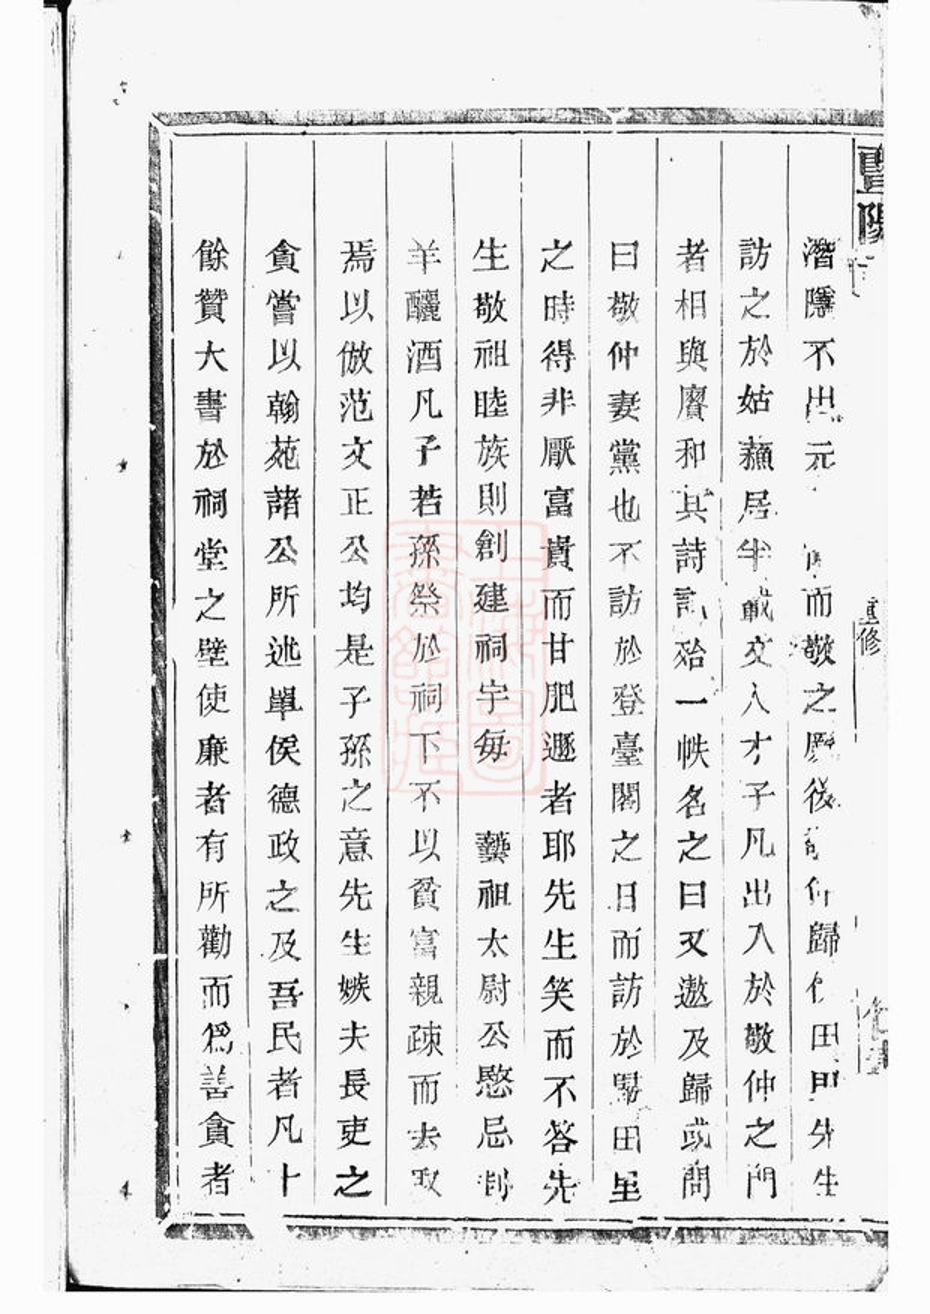 暨陽
重修
潛隱不出元而敬之厥後仲歸田門先生
訪之於姑蘇居半載文人才子凡出入於敬仲之門
者相與賡和其詩殆一帙名之曰遨及歸或問
曰敬仲妻黨也不訪於登臺閣之日而訪於歸田里
之時得非厭富貴而甘肥遯者耶先生笑而不答先
生敬祖睦族則創建祠宇每 藝祖太尉公愍忌
羊釃酒凡子若孫祭於祠下不以貧富親疎而去取
焉以倣范文正公均是子孫之意先生嫉夫長吏之
貪嘗以翰苑諸公所述單侯德政之及吾民者凡十
餘贊大書於祠堂之壁使廉者有所勸而爲善貪者